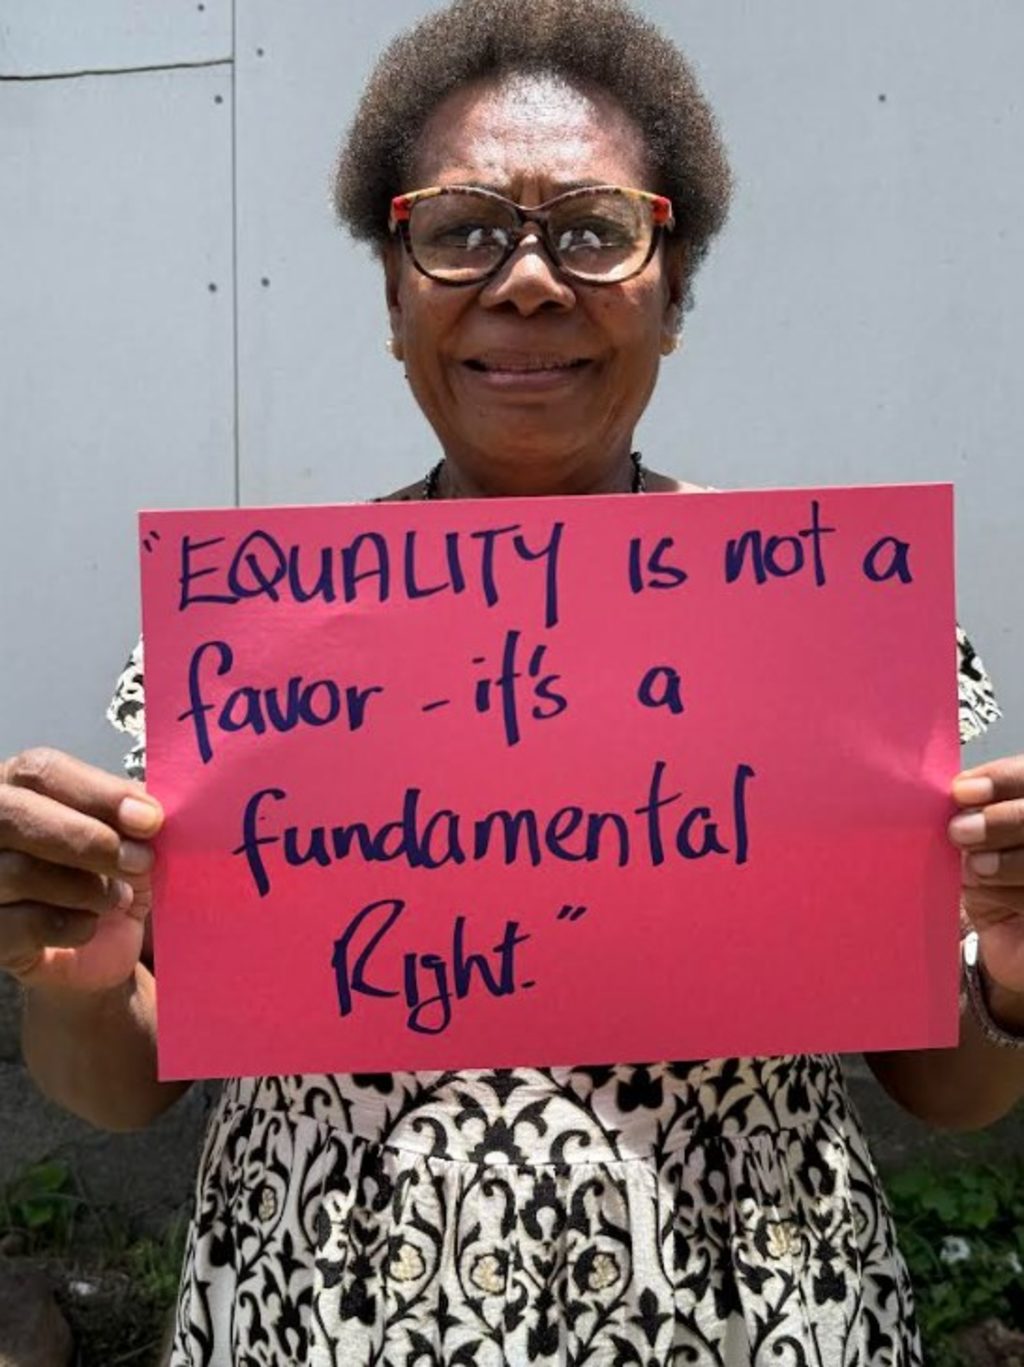 "EQUALITY is not a
favor - it's a
fundamental
Right."